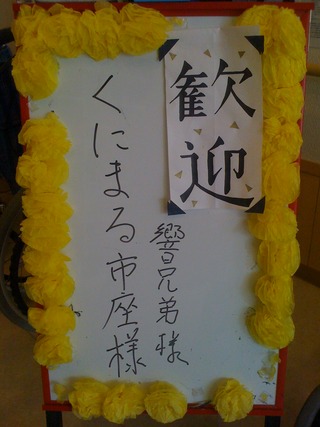 歓迎
響兄弟様
くにまる市座様